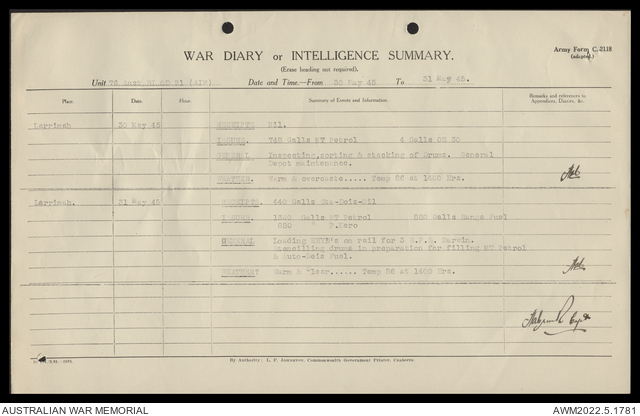 Army Form C. 2118
(adapted.)
WAR DIARY or INTELLIGENCE SUMMARY.
(Erase heading not required).
Unit 76 Aust (AIF) Date and Time.—From 30 May 45 To 31 May 45.
Place. Date. Hour. Summary of Events and Information. Remarks and references to
Appendices, Diaries, &c.
Larrimah 30 May 45 RECEIPTS Nil.
ISSUES. 748 Galls MT Petrol 4 Galls OE 30
GENERAL Inspecting, sorting & stacking of Drums. General
Depot maintenance.
WEATHER. Warm & overcast..... Temp 86 at 1400 Hrs.
Larrimah. 31 May 45 RECEIPTS. 440 Galls
ISSUES 1340 Galls MT Petrol Galls Range Fuel
880 " P.Kero
GENERAL Loading on rail for 3 Darwin.
Stencilling drums in preparation for filling MT Petrol
& Auto-Deiz Fuel.
WEATHER Warm & Clear...... Temp 86 at 1400 Hrs.
Capt
By Authority: L. F. Johnston, Commonwealth Government Printer, Canberra.
AUSTRALIAN WAR MEMORIAL AWM2022.5.1781